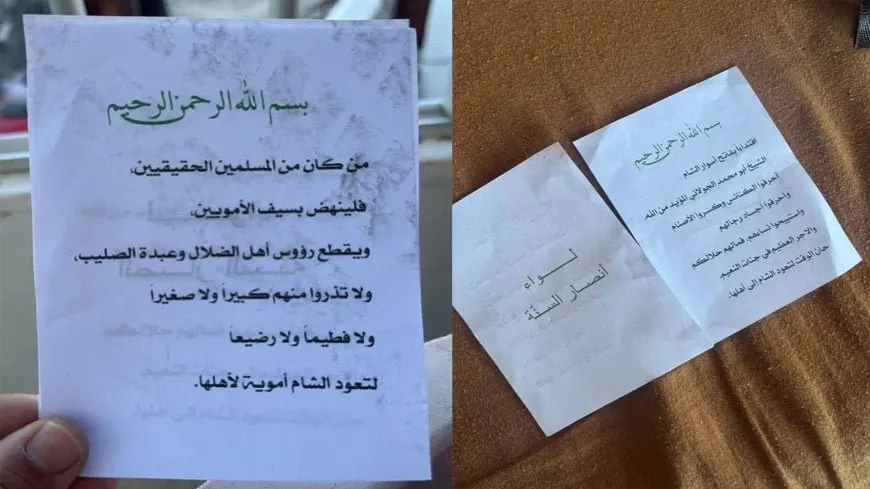 بسم الله الرحمن الرحيم
من كان من المسلمين الحقيقيين،
فلينهض بسيف الأمويين،
ويقطع رؤوس أهل الضلال وعبدة الصليب،
ولا تذروا منهم كبيراً ولا صغيراً
ولا فطيماً ولا رضيعاً
لتعود الشام أموية لأهلها.
بسم الله الرحمن الرحيم
اقتداءاً بفاتح أسوار الشام
الشيخ أبو محمد الجولاني المؤيد من الله.
أحرقوا الكنائس وكسروا الأصنام
وأحرقوا أجساد رجالهم
واستبيحوا نساءهم، فمالهم حلالكم
والأجر العظيم في جنات النعيم.
حان الوقت لتعود الشام إلى أهلها.
لـــواء
أنصار السنة